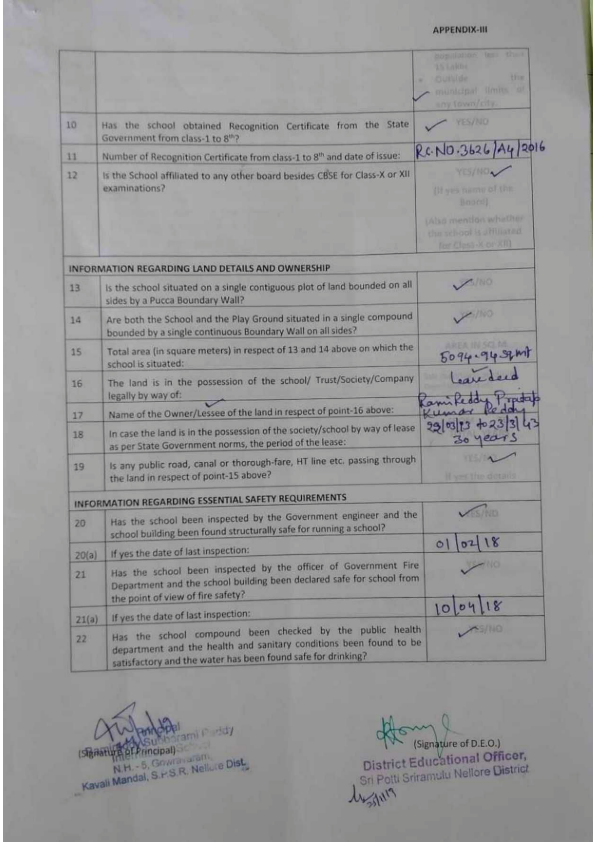 APPENDIX-III
15 Lakhs
• Outside the
municipal limits of
any town/city.
10 Has the school obtained Recognition Certificate from the State YES/NO
Government from class-1 to 8th?
11 Number of Recognition Certificate from class-1 to 8th and date of issue: RC.NO.3626/A4/2016
12 Is the School affiliated to any other board besides CBSE for Class-X or XII YES/NO
examinations?
(If yes name of the
Board)
(Also mention whether
the school is affiliated
for Class-X or XII)
INFORMATION REGARDING LAND DETAILS AND OWNERSHIP
13 Is the school situated on a single contiguous plot of land bounded on all YES/NO
sides by a Pucca Boundary Wall?
14 Are both the School and the Play Ground situated in a single compound YES/NO
bounded by a single continuous Boundary Wall on all sides?
AREA IN SQ.M
15 Total area (in square meters) in respect of 13 and 14 above on which the 5094.94 sqmt
school is situated:
16 The land is in the possession of the school/ Trust/Society/Company Lease deed
legally by way of:
17 Name of the Owner/Lessee of the land in respect of point-16 above: Rami Reddy Pratap
Kumar Reddy
18 In case the land is in the possession of the society/school by way of lease to 23/3/43
as per State Government norms, the period of the lease: 30 years
19 Is any public road, canal or thorough-fare, HT line etc. passing through YES/NO
the land in respect of point-15 above? If yet the details
INFORMATION REGARDING ESSENTIAL SAFETY REQUIREMENTS
20 Has the school been inspected by the Government engineer and the YES/NO
school building been found structurally safe for running a school?
20(a) If yes the date of last inspection: 01/02/18
21 Has the school been inspected by the officer of Government Fire YES/NO
Department and the school building been declared safe for school from
the point of view of fire safety?
21(a) If yes the date of last inspection: 10/04/18
22 Has the school compound been checked by the public health YES/NO
department and the health and sanitary conditions been found to be
satisfactory and the water has been found safe for drinking?
Principal
(Signature of Principal)
Subbarami Reddy
International School
N.H.- 5, Gowravaram,
Kavali Mandal, S.P.S.R. Nellore Dist.
(Signature of D.E.O.)
District Educational Officer,
Sri Potti Sriramulu Nellore District